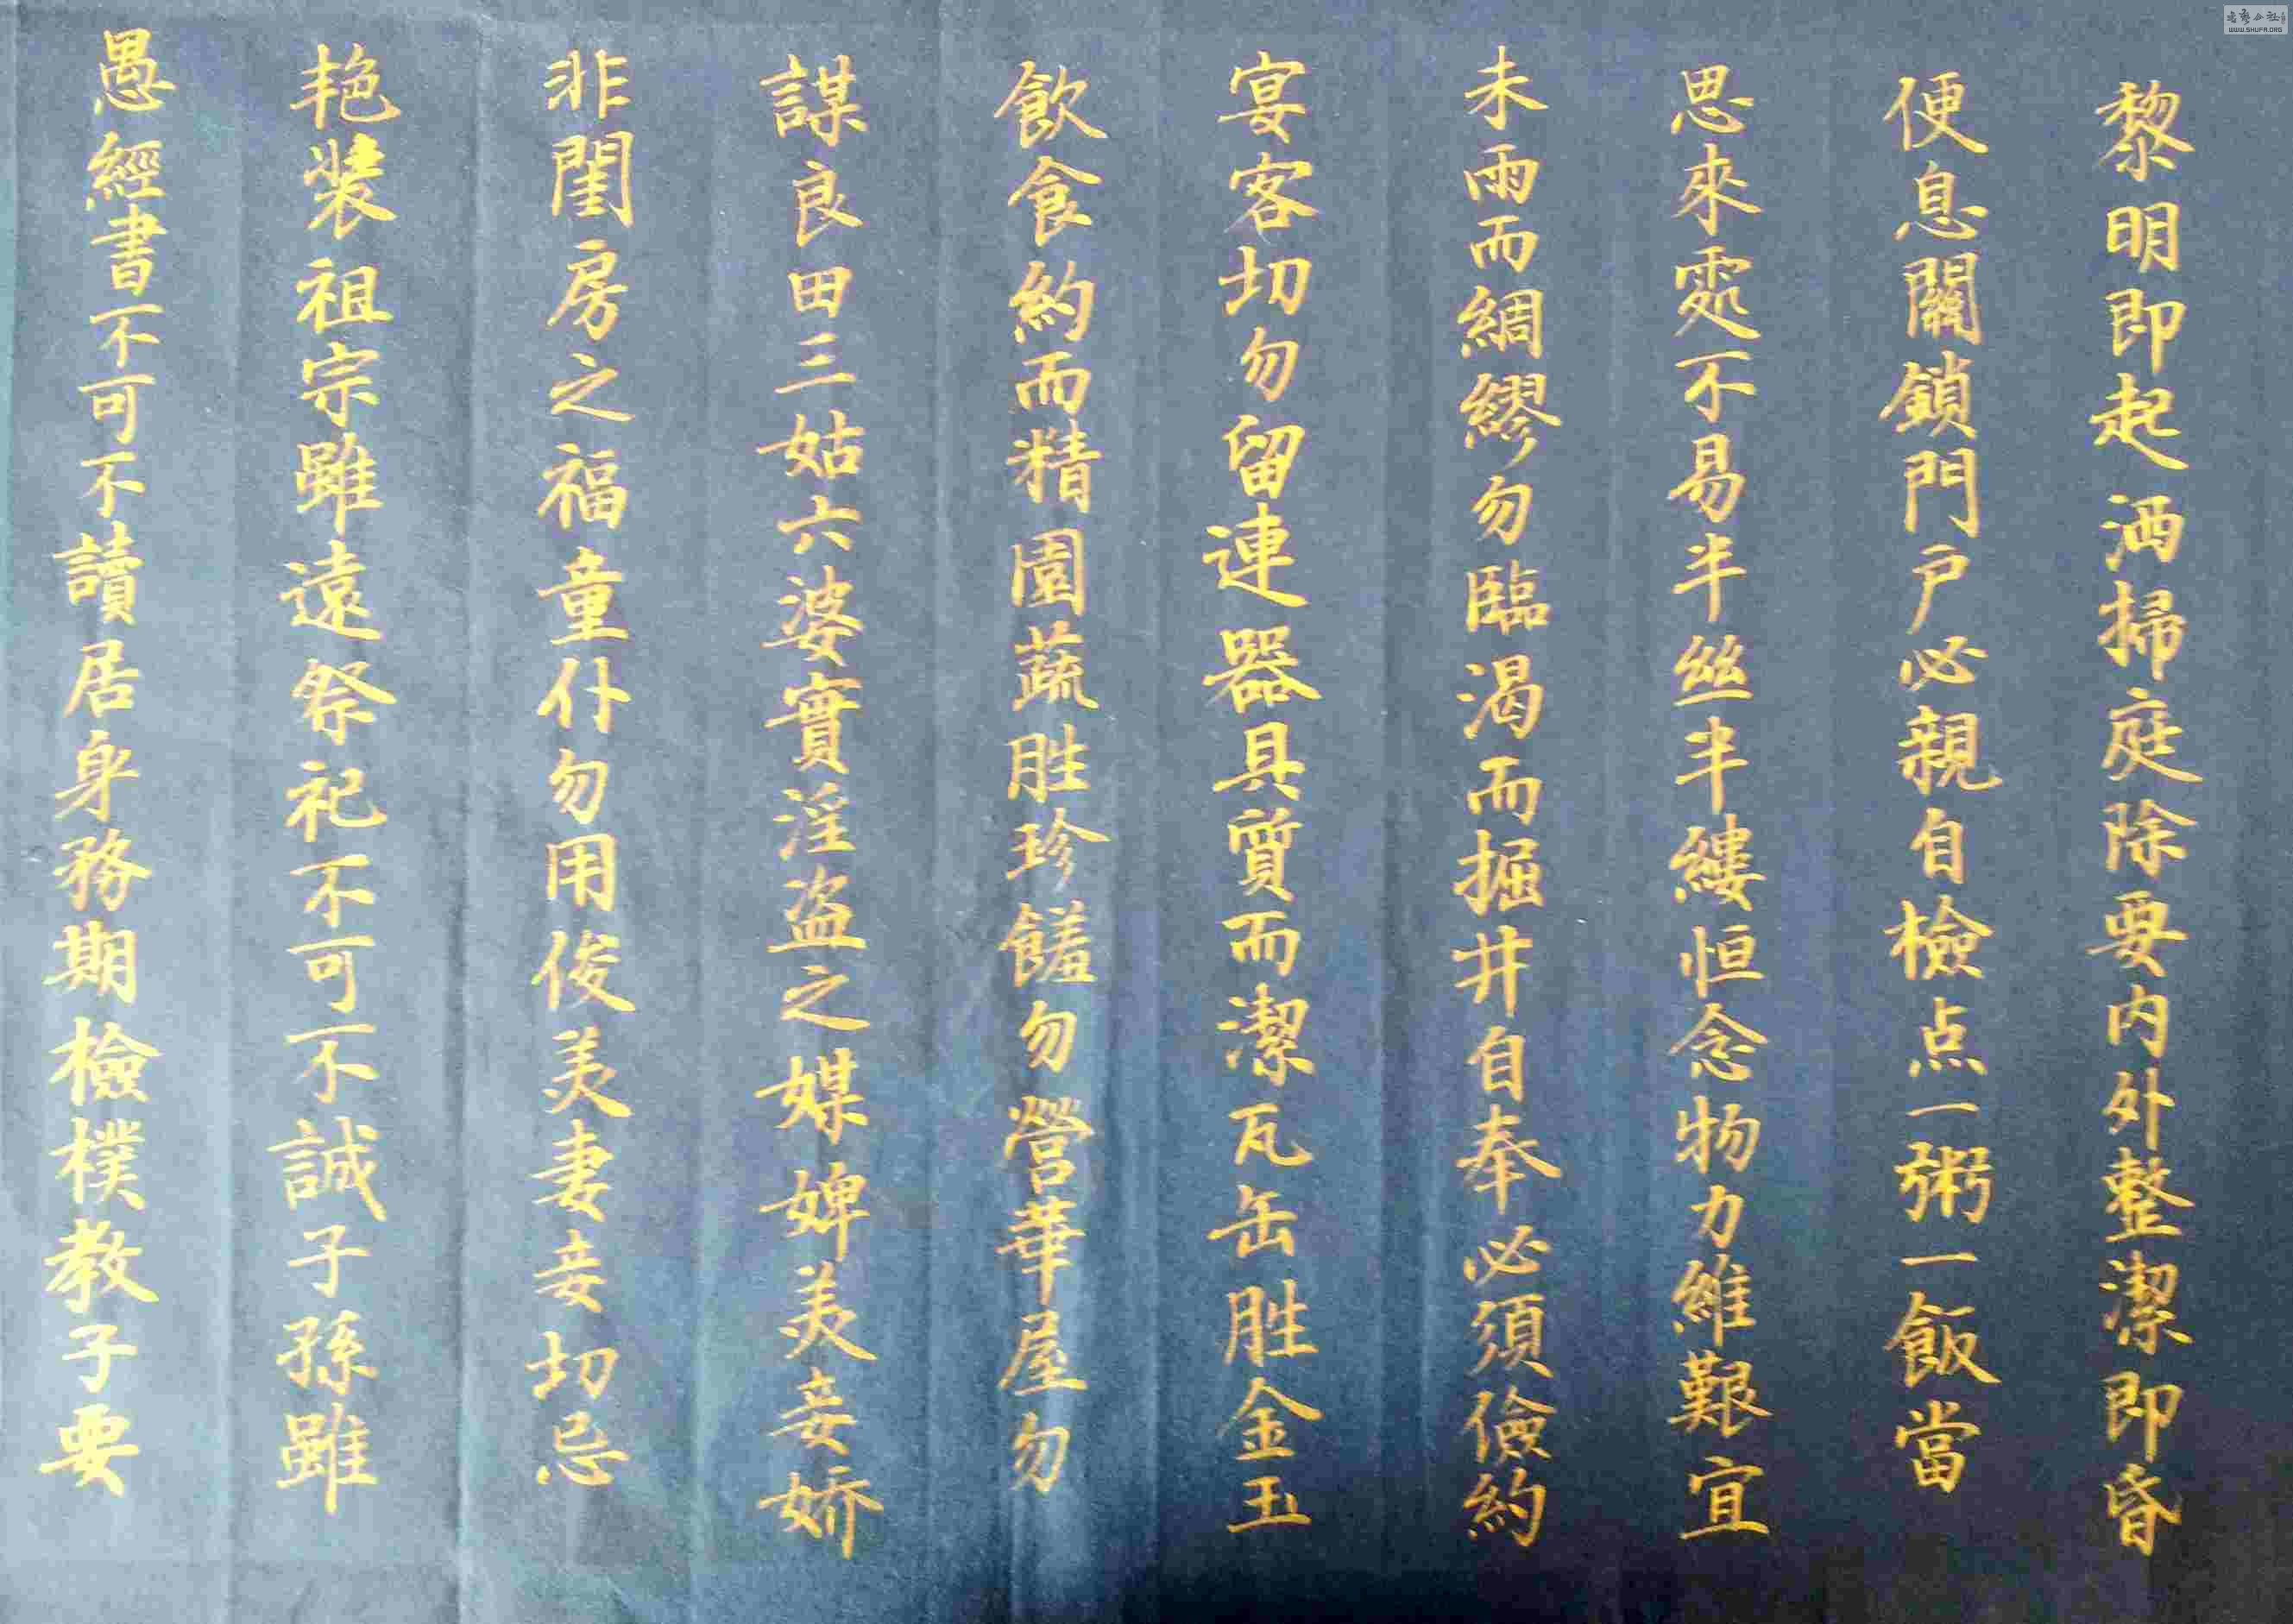 黎明即起洒掃庭除要内外整潔即昏
便息關鎖門户必親自檢点一粥一飯當
思來處不易半絲半縷恒念物力維艱宜
未雨而綢繆勿臨渴而掘井自奉必須儉約
宴客切勿留連器具質而潔瓦缶胜金玉
飲食約而精園蔬胜珍饈勿營華屋勿
謀良田三姑六婆實淫盗之媒婢美妾娇
非閨房之福童仆勿用俊美妻妾切忌
艳装祖宗雖遠祭祀不可不誠子孫雖
愚經書不可不讀居身務期檢樸教子要
WWW.SHUFA.ORG